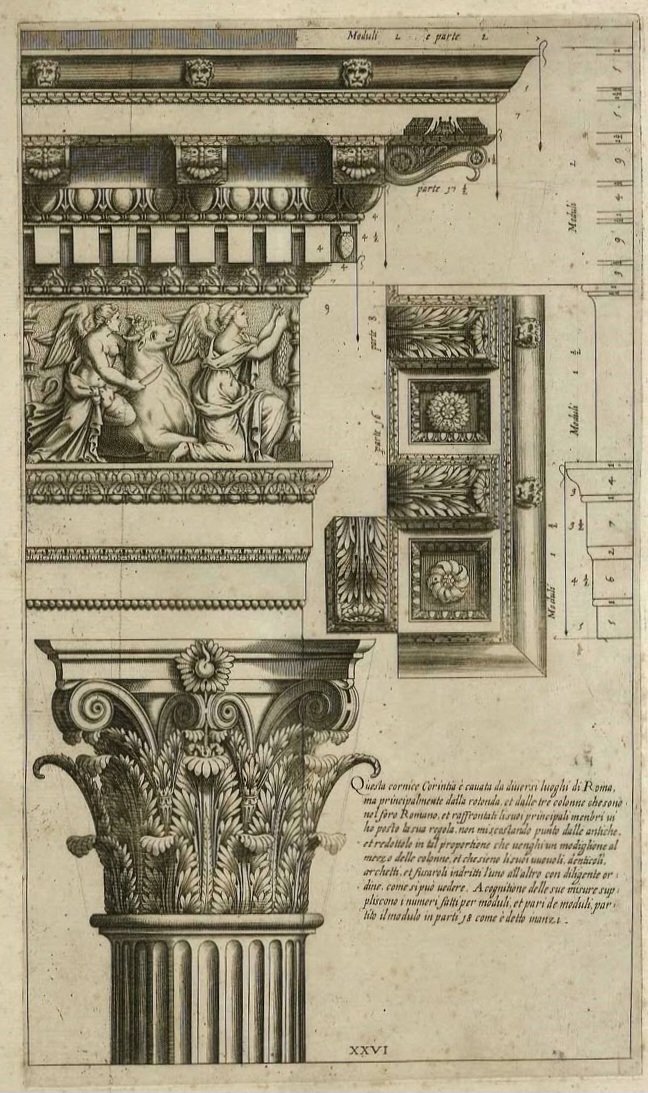 Moduli 2 e parte 2
parte 17 1/2
Moduli 2
parte 8
parte 16
Moduli 1 1/2
Moduli 1 1/2
Questa cornice Corintia è cauata da diuersi luoghi di Roma,
ma principalmente dalla rotonda, et dalle tre colonne che sono
nel foro Romano, et raffrontati li suoi principali menbri ui
ho posto la sua regola, non mi scostando punto dalle antiche,
et redottolo in tal proportione che uenghi un modiglione al
mezzo delle colonne, et che sieno li suoi uuouoli, denticoli,
archetti, et fusaroli indritti l'uno all'altro con diligente or:
dine, come si può uedere. A cognitione delle sue misure sup:
pliscono i numeri fatti per moduli, et pari de moduli, par:
tito il modulo in parti 18 come è detto inanzi.
XXVI